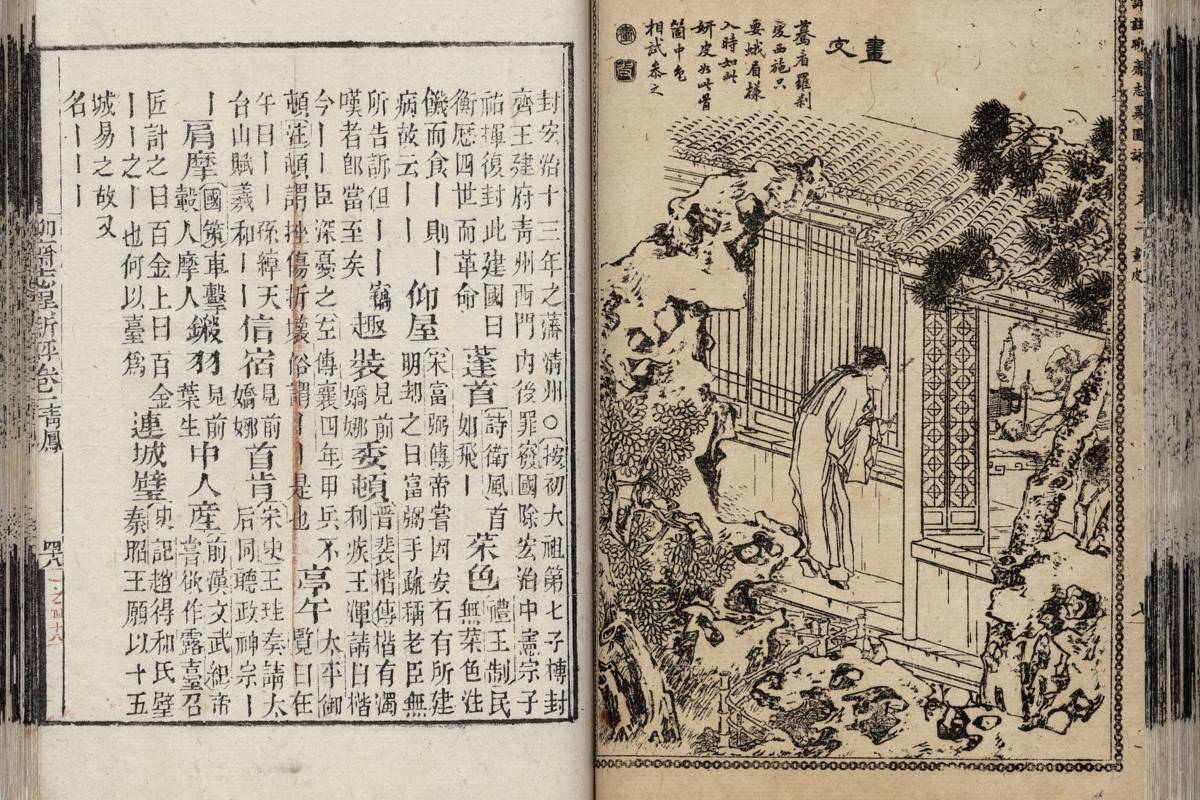 詳註聊齋志異圖詠
畫皮
畫皮
驀看羅剎
變西施只
要蛾眉樣
入時如此
妍皮如此骨
箇中色
相試參之
封宏治十三年之藩清州○按初大祖第七子榑封
齊王建府青州西門內後罪竄國除宏治中憲宗子
祐揮復封此建國曰
衡歷四世而革命
蓬首
詩衛風首
如飛丨
菜色
禮王制民
無菜色注
饑而食丨則丨
病故云丨丨
仰屋
宋富弼傳帝嘗因安石有所建
明刼之曰富弼手疏稱老臣無
所告訴但丨丨竊
嘆者卽當至矣
趣裝
見前
嬌娜
委頓
晋裴楷傳楷有濁
利疾王渾請曰楷
今丨丨臣深憂之左傳襄四年甲兵不
頓注頓謂挫傷折壞俗謂丨丨是也
亭午
太平御
覽日在
午曰丨丨孫綽天
台山賦羲和丨丨
信宿
見前
嬌娜
首肯
宋史王珪奏請太
后同聽政神宗丨
丨
肩摩
國策車擊
轂人摩人
鎩羽
見前
葉生
中人產
前漢文武視帝
嘗欲作露臺召
匠計之曰百金上曰百金
丨丨之丨也何以臺爲
連城璧
史記趙得和氏璧
秦昭王願以十五
城易之故又
名丨丨丨
聊齋志異新評卷一 青鳳